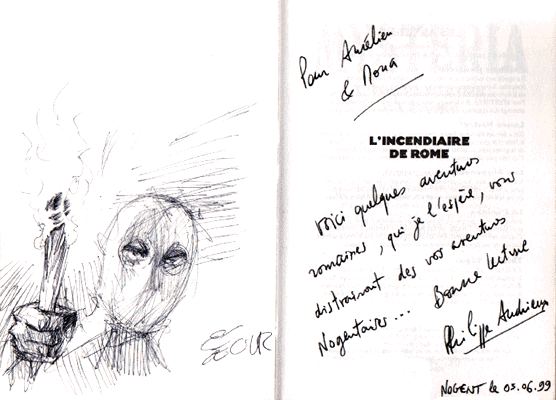 Pour Aurélien
& Mona
L'INCENDIAIRE
DE ROME
Voici quelques aventures
romaines, qui je l'espère, vous
distrairont des vos aventures
Nogentaises... Bonne lecture
Philippe Andrieux
NOGENT le 05.06.99